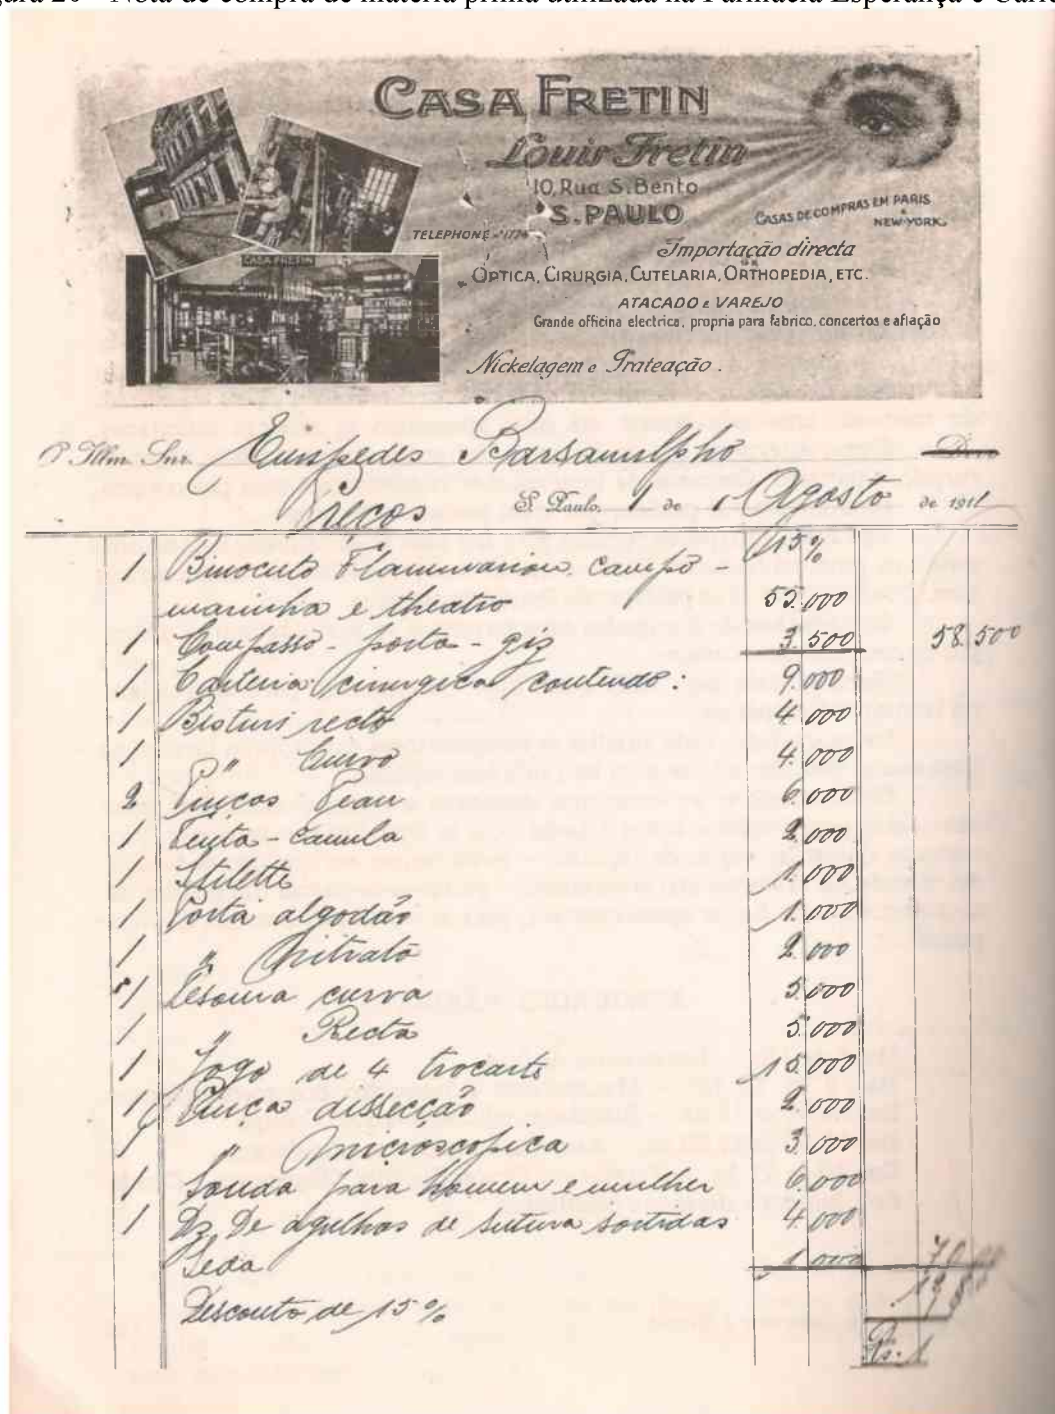 Nota de compra de matéria prima utilizada na Farmácia Esperança e
CASA FRETIN
Louis Fretin
10, Rua S. Bento
S. PAULO
TELEPHONE
CASAS DE COMPRAS EM PARIS
& NEW-YORK.
CASA FRETIN
Importação directa
DE
OPTICA, CIRURGIA, CUTELARIA, ORTHOPEDIA, ETC.
ATACADO e VAREJO
Grande officina electrica, propria para fabrico, concertos e afiação
Nickelagem e Prateação.
Illm. Snr. Euripedes Barsanulpho
Preços S. Paulo, 1 de Agosto de 191
15%
1 Binoculo Flammarion campo -
marinha e theatro 55.000
1 Compasso - porta - giz 3.500 58.500
1 Carteira cirurgica contendo: 9.000
1 Bisturi recto 4.000
1 " Curvo 4.000
2 Pinças Pean 6.000
1 Tenta - canula 2.000
1 Stilette 1.000
1 Porta algodão 1.000
1 " Nitrato 2.000
1 Tesoura curva 5.000
1 " Recta 5.000
1 Jogo de 4 trocarts 15.000
1 Pinça dissecção 2.000
1 " Microscopica 3.000
1 Sonda para homem e mulher 6.000
1 Dz. De agulhas de sutura sortidas 4.000
Seda 1.000 70
Desconto de 15%
Rs. 1